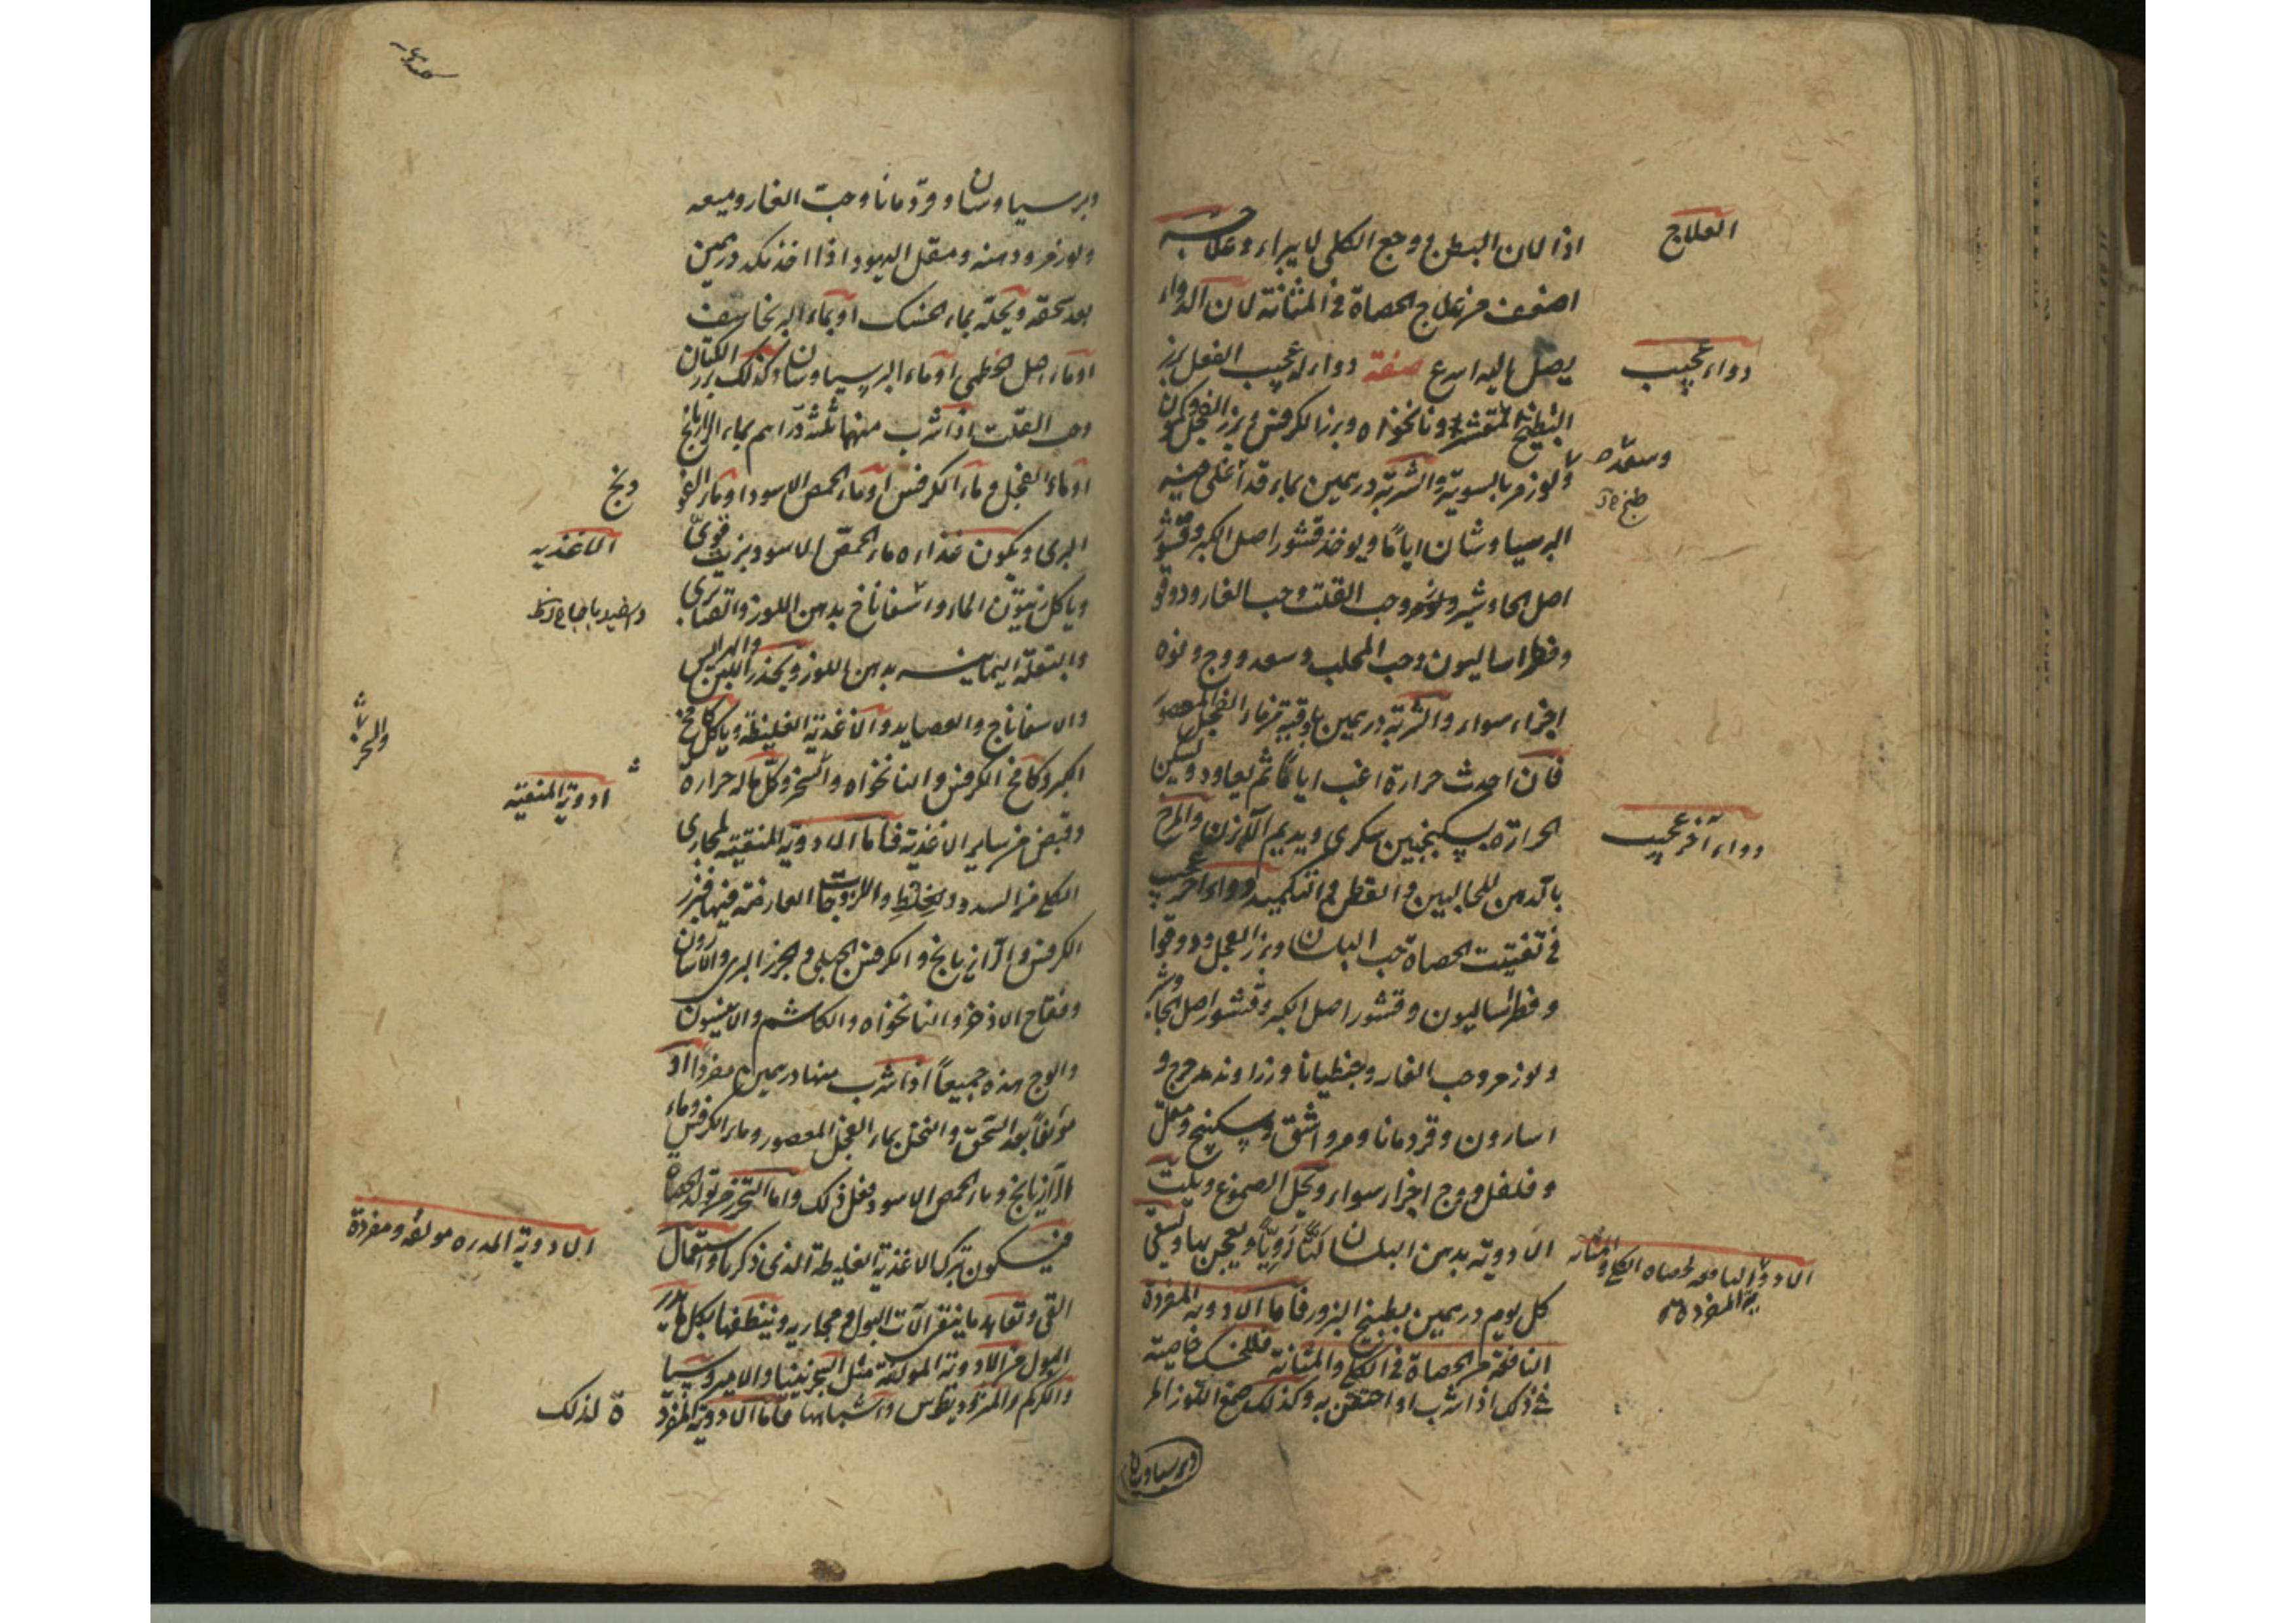 العلاج
اذا لان البطن في وجع الكلى لا يبراء وعلاجه
اضعف من علاج الحصاة في المثانة لان الدواء
يصل اليه اسرع صفة دواء له عجيب الفعل بزر
دواء عجيب
البطيخ المقشر ونانخواه وبزر الكرفس وبزر الفجل
وسعد
ولوز مر بالسوية والشربة درهمين بماء قد أغلي فيه
البرسياوشان اياما ويوخذ قشور اصل الكبر وقشور
اصل الجاوشير ولوز مر وحب القلت وحب الغار ودوقو
وفطراساليون وحب المحلب وسعد ووج وفوه
اجزاء سواء والشربة درهمين باوقية من ماء الفجل المعصور
فان احدث حرارة اغب اياما ثم يعاود وتسكين
الحرارة بسكنجبين سكري ويديم الابزن والمرخ
دواء آخر عجيب
بالدهن للحالبين والقطن والتكميد دواء آخر عجيب
في تفتيت الحصاة حب البلسان وبزر الفجل ودوقوا
وفطراساليون وقشور اصل الكبر وقشور اصل الجاوشير
ولوز مر وحب الغار وجنطيانا وزراوند مدحرج و
اسارون وقردمانا ومر واشق وسكبينج ومقل
وفلفل ووج اجزاء سواء وتحل الصموغ ويلت
الادوية بدهن البلسان لتا رويا ويعجن بها ويسقى
الادوية النافعة لحصاه الكلى والمثانه
المفردة
كل يوم درهمين بطبيخ البزور فاما الادوية المفردة
النافعة من الحصاة في الكلى والمثانة فللحسك خاصية
في ذلك اذا شرب او احتقن به وكذلك صمغ اللوز المر
وبرسياوشان
وبرسياوشان وقردمانا وحب الغار وميعه
ولوز مر ودهنه ومقل اليهود اذا اخذ بكد درهمين
بعد سحقه ويحله بماء الحسك او بماء البرنجاسف
او ماء اصل الخطمي او ماء البرسياوشان وكذلك بزر الكتان
وحب القلت اذا شرب منها ثلثة دراهم بماء الرازيانج
او ماء الفجل وماء الكرفس او ماء الحمص الاسود او ماء الفو
البري ويكون غذاءه ماء الحمص الاسود بزيت قوي
الاغذيه
وياكل زيتون الماء واسفاناخ بدهن اللوز والقنابري
والبقلة اليمانيه بدهن اللوز ويحذر اللبن والهرايس
والاسفاناج والعصايد والاغذية الغليظة وياكل كامخ
الكبر وكامخ الكرفس والنانخواه والسخر وكل ماله حرارة
ادوية المنقيه
وقبض من ساير الاغذية فاما الادوية المنقية لمجاري
الكلى من السدود والخلط واللزوجات العارضة فيها فبزر
الكرفس والرازيانج والكرفس الجبلي والجزر البري والاسارون
وفقاح الاذخر والنانخواه والكاشم والانيسون
والوج هذه جميعا اذا شرب منها درهمين مفردا او
مولفا بعد السحق والنخل بماء الفجل المعصور وماء الكرفس وماء
الرازيانج وماء الحمص الاسود فعل ذلك واما التحرز من تولد الحصاة
الادوية المدره مولفه ومفردة
فيكون بترك الاغذية الغليظة الذي ذكرنا واستعمال
القي وتعاهد ما ينقي آلات البول ومجاريه وينظفها بكل ما يدر
البول من الادوية المولفة مثل السجزنينا والاميروسيا
والكركم والمثروديطوس واشباهها فاما الادوية المفرد
ة لذلك